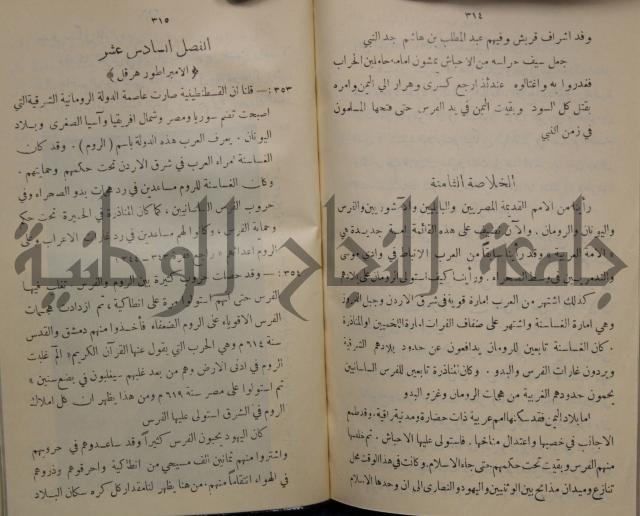 ٣١٤
وفد اشراف قريش وفيهم عبد المطلب بن هاشم جد النبي
جعل سيف حراسه من الاحباش يمشون امامه حاملين الحراب
فغدروا به واغتالوه عندئذ ارجع كسرى وهرار الى اليمن وامره
بقتل كل اسود وبقيت اليمن في يد الفرس حتى فتحها المسلمون
في زمن النبي
الخلاصة الثامنة
رأينا من الامم القديمة المصريين والبابليين والآشوريين والفرس
واليونان والرومان والآن نضيف على هذه القائمة امة جديدة هي
الامة العربية وقد رأينا سابقاً من العرب الانباط في وادي موسى
والتدمريين في وسط الصحراء ورأينا كيف استولى الرومان على بلادهم
كذلك اشتهر من العرب امارة قوية في شرق الاردن وجبل الدروز
وهي امارة الغساسنة واشتهر على ضفاف الفرات امارة اللخميين او المناذرة
كان الغساسنة تابعين للرومان يدافعون عن حدود بلادهم الشرقية
ويردون غارات الفرس والبدو. وكان المناذرة تابعين للفرس الساسانيين
يحمون حدودهم الغربية من هجمات الرومان وغزو البدو
اما بلاد اليمن فقد سكنها امم عربية ذات حضارة ومدنية راقية، وقد طمع
الاجانب في خصبها واعتدال مناخها. فاستولى عليها الاحباش. ثم خلصها
منهم الفرس وبقيت تحت حكمهم حتى جاء الاسلام. وكانت في هذا الوقت محل
تنازع وميدان مذابح بين الوثنيين واليهود والنصارى الى ان وحدها الاسلام
٣١٥
الفصل السادس عشر
﴿ الامبراطور هرقل ﴾
٣٥٣:— قلنا ان القسطنطينية صارت عاصمة الدولة الرومانية الشرقية التي
اصبحت تضم سوريا ومصر وشمال افريقيا وآسيا الصغرى وبلاد
اليونان. يعرف العرب هذه الدولة باسم (الروم). وقد كان
الغساسنة امراء العرب في شرق الاردن تحت حكمهم وحمايتهم.
وكان الغساسنة للروم مساعدين في رد هجمات بدو الصحراء وفي
حروب الفرس الساسانيين، كما كان المناذرة في الحيرة تحت حكم
وحماية الفرس، وكانوا لهم مساعدين في رد غارات الاعراب وعلى
الروم اعدائهم
٣٥٤:— وقد حصلت حروب كثيرة بين الروم والفرس تغلب فيها
الفرس حتى انهم استولوا مرة على انطاكية، ثم ازدادت هجمات
الفرس الاقوياء على الروم الضعفاء. فأخذوا منهم دمشق والقدس
سنة ٦١٤ م وهي الحرب التي يقول عنها القرآن الكريم « الم غلبت
الروم في ادنى الارض وهم من بعد غلبهم سيغلبون في بضع سنين »
ثم استولوا على مصر سنة ٦١٩ م ومن هذا يظهر ان كل املاك
الروم في الشرق استولى عليها الفرس
كان اليهود يحبون الفرس كثيراً وقد ساعدوهم في حروبهم
واشتروا منهم ثمانين الف مسيحي من انطاكية واحرقوهم وذروهم
في الهواء انتقاماً منهم. من هنا يظهر لنا مقدار كل كره سكان البلاد
جامعة النجاح الوطنية